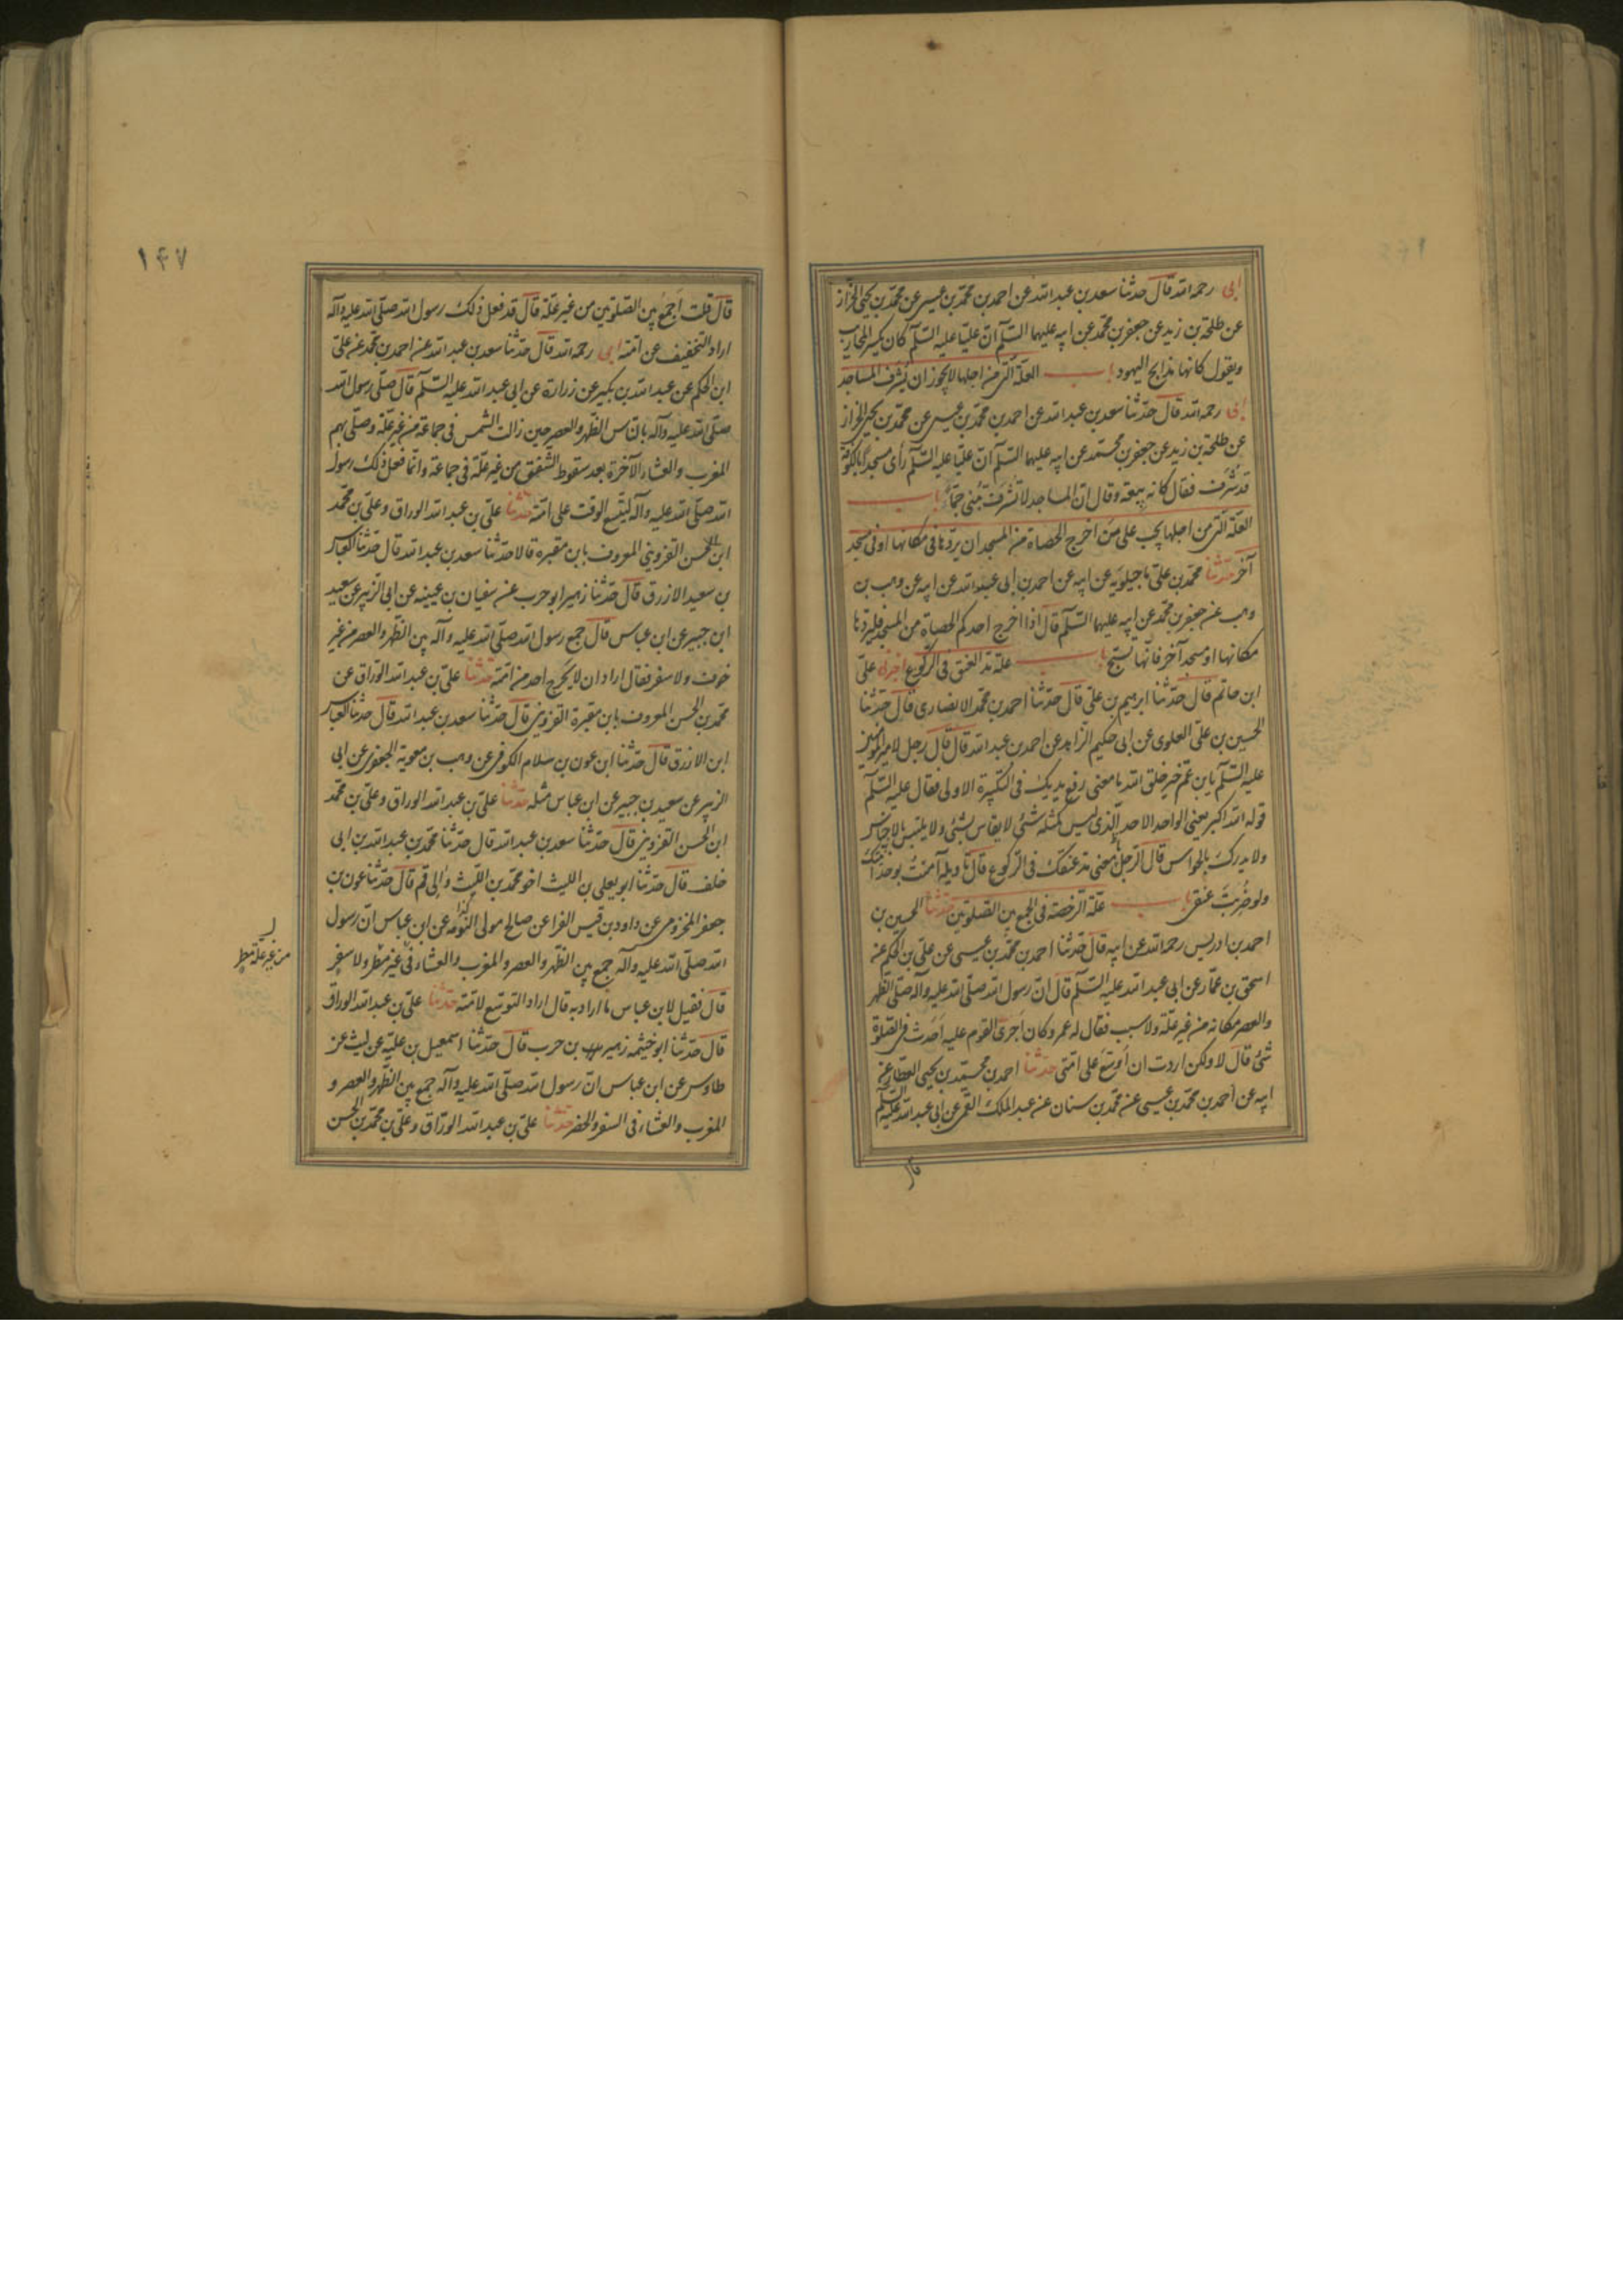 ابى رحمه الله قال حدثنا سعد بن عبد الله عن احمد بن محمد بن عيسى عن محمد بن يحيى الخزاز
عن طلحة بن زيد عن جعفر بن محمد عن ابيه عليهما السلم ان عليا عليه السلم كان يكسر المحاريب
ويقول كانها مذابح اليهود باب العلة التى من اجلها لا يجوز ان يشرف المساجد
ابى رحمه الله قال حدثنا سعد بن عبد الله عن احمد بن محمد بن عيسى عن محمد بن يحيى الخزاز
عن طلحة بن زيد عن جعفر بن محمد عن ابيه عليهما السلم ان عليا عليه السلم رأى مسجدا بالكوفة
قد شرف فقال كانه بيعة وقال ان المساجد لا تشرف تبنى جما باب
العلة التى من اجلها يجب على من اخرج الحصاة من المسجد ان يردها فى مكانها او فى مسجد
آخر حدثنا محمد بن على ماجيلويه عن ابيه عن احمد بن ابى عبد الله عن ابيه عن وهب بن
وهب عن جعفر بن محمد عن ابيه عليهما السلم قال اذا اخرج احدكم الحصاة من المسجد فليردها
مكانها او مسجد آخر فانها تسبح باب علة مد العنق فى الركوع اخبرنا على
ابن حاتم قال حدثنا ابرهيم بن على قال حدثنا احمد بن محمد الانصارى قال حدثنا
الحسين بن على العلوى عن ابى حكيم الزاهد عن احمد بن عبد الله قال قال رجل لامير المومنين
عليه السلم يابن عم خير خلق الله ما معنى رفع يديك فى التكبيرة الاولى فقال عليه السلم
قوله الله اكبر يعنى الواحد الاحد الذى ليس كمثله شئ لا يقاس بشئ ولا يلتبس بالاجناس
ولا يدرك بالحواس قال الرجل ما معنى مد عنقك فى الركوع قال تاويله آمنت بوحدانيتك
ولو ضربت عنقى باب علة الرخصة فى الجمع بين الصلوتين حدثنا الحسين بن
احمد بن ادريس رحمه الله عن ابيه قال حدثنا احمد بن محمد بن عيسى عن على بن الحكم عن
اسحق بن عمار عن ابى عبد الله عليه السلم قال ان رسول الله صلى الله عليه وآله صلى الظهر
والعصر مكانه من غير علة ولا سبب فقال له عمر وكان اجرى القوم عليه احدث فى الصلوة
شئ قال لا ولكن اردت ان اوسع على امتى حدثنا احمد بن محمد بن يحيى العطار عن
ابيه عن احمد بن محمد بن عيسى عن محمد بن سنان عن عبد الملك القمى عن ابى عبد الله عليه السلم
قال
١٤٧
قال قلت اجمع بين الصلوتين من غير علة قال قد فعل ذلك رسول الله صلى الله عليه وآله
اراد التخفيف عن امته ابى رحمه الله قال حدثنا سعد بن عبد الله عن احمد بن محمد عن على
ابن الحكم عن عبد الله بن بكير عن زرارة عن ابى عبد الله عليه السلم قال صلى رسول الله
صلى الله عليه وآله بالناس الظهر والعصر حين زالت الشمس فى جماعة من غير علة وصلى بهم
المغرب والعشاء الآخرة بعد سقوط الشفق من غير علة فى جماعة وانما فعل ذلك رسول
الله صلى الله عليه وآله ليتسع الوقت على امته حدثنا على بن عبد الله الوراق وعلى بن محمد
ابن الحسن القزوينى المعروف بابن مقبرة قالا حدثنا سعد بن عبد الله قال حدثنا العباس
بن سعيد الازرق قال حدثنا زهير ابو حرب عن سفيان بن عيينه عن ابى الزبير عن سعيد
ابن جبير عن ابن عباس قال جمع رسول الله صلى الله عليه وآله بين الظهر والعصر من غير
خوف ولا سفر فقال اراد ان لا يحرج احد من امته حدثنا على بن عبد الله الوراق عن
محمد بن الحسن المعروف بابن مقبرة القزوينى قال حدثنا سعد بن عبد الله قال حدثنا العباس
ابن الازرق قال حدثنا ابن عون بن سلام الكوفى عن وهب بن معوية الجعفى عن ابى
الزبير عن سعيد بن جبير عن ابن عباس مثله حدثنا على بن عبد الله الوراق وعلى بن محمد
ابن الحسن القزوينى قال حدثنا سعد بن عبد الله قال حدثنا محمد بن عبد الله بن ابى
خلف قال حدثنا ابو يعلى بن الليث اخو محمد بن الليث والى قم قال حدثنا عون بن
جعفر المخزومى عن داود بن قيس الفرا عن صالح مولى التومه عن ابن عباس ان رسول
الله صلى الله عليه وآله جمع بين الظهر والعصر والمغرب والعشاء فى غير مطر ولا سفر
من غير علة مطر
قال فقيل لابن عباس ما اراد به قال اراد التوسع لامته حدثنا على بن عبد الله الوراق
قال حدثنا ابو خيثمه زهير بن حرب قال حدثنا اسمعيل بن علية عن ليث عن
طاوس عن ابن عباس ان رسول الله صلى الله عليه وآله جمع بين الظهر والعصر و
المغرب والعشاء فى السفر والحضر حدثنا على بن عبد الله الوراق وعلى بن محمد بن الحسن